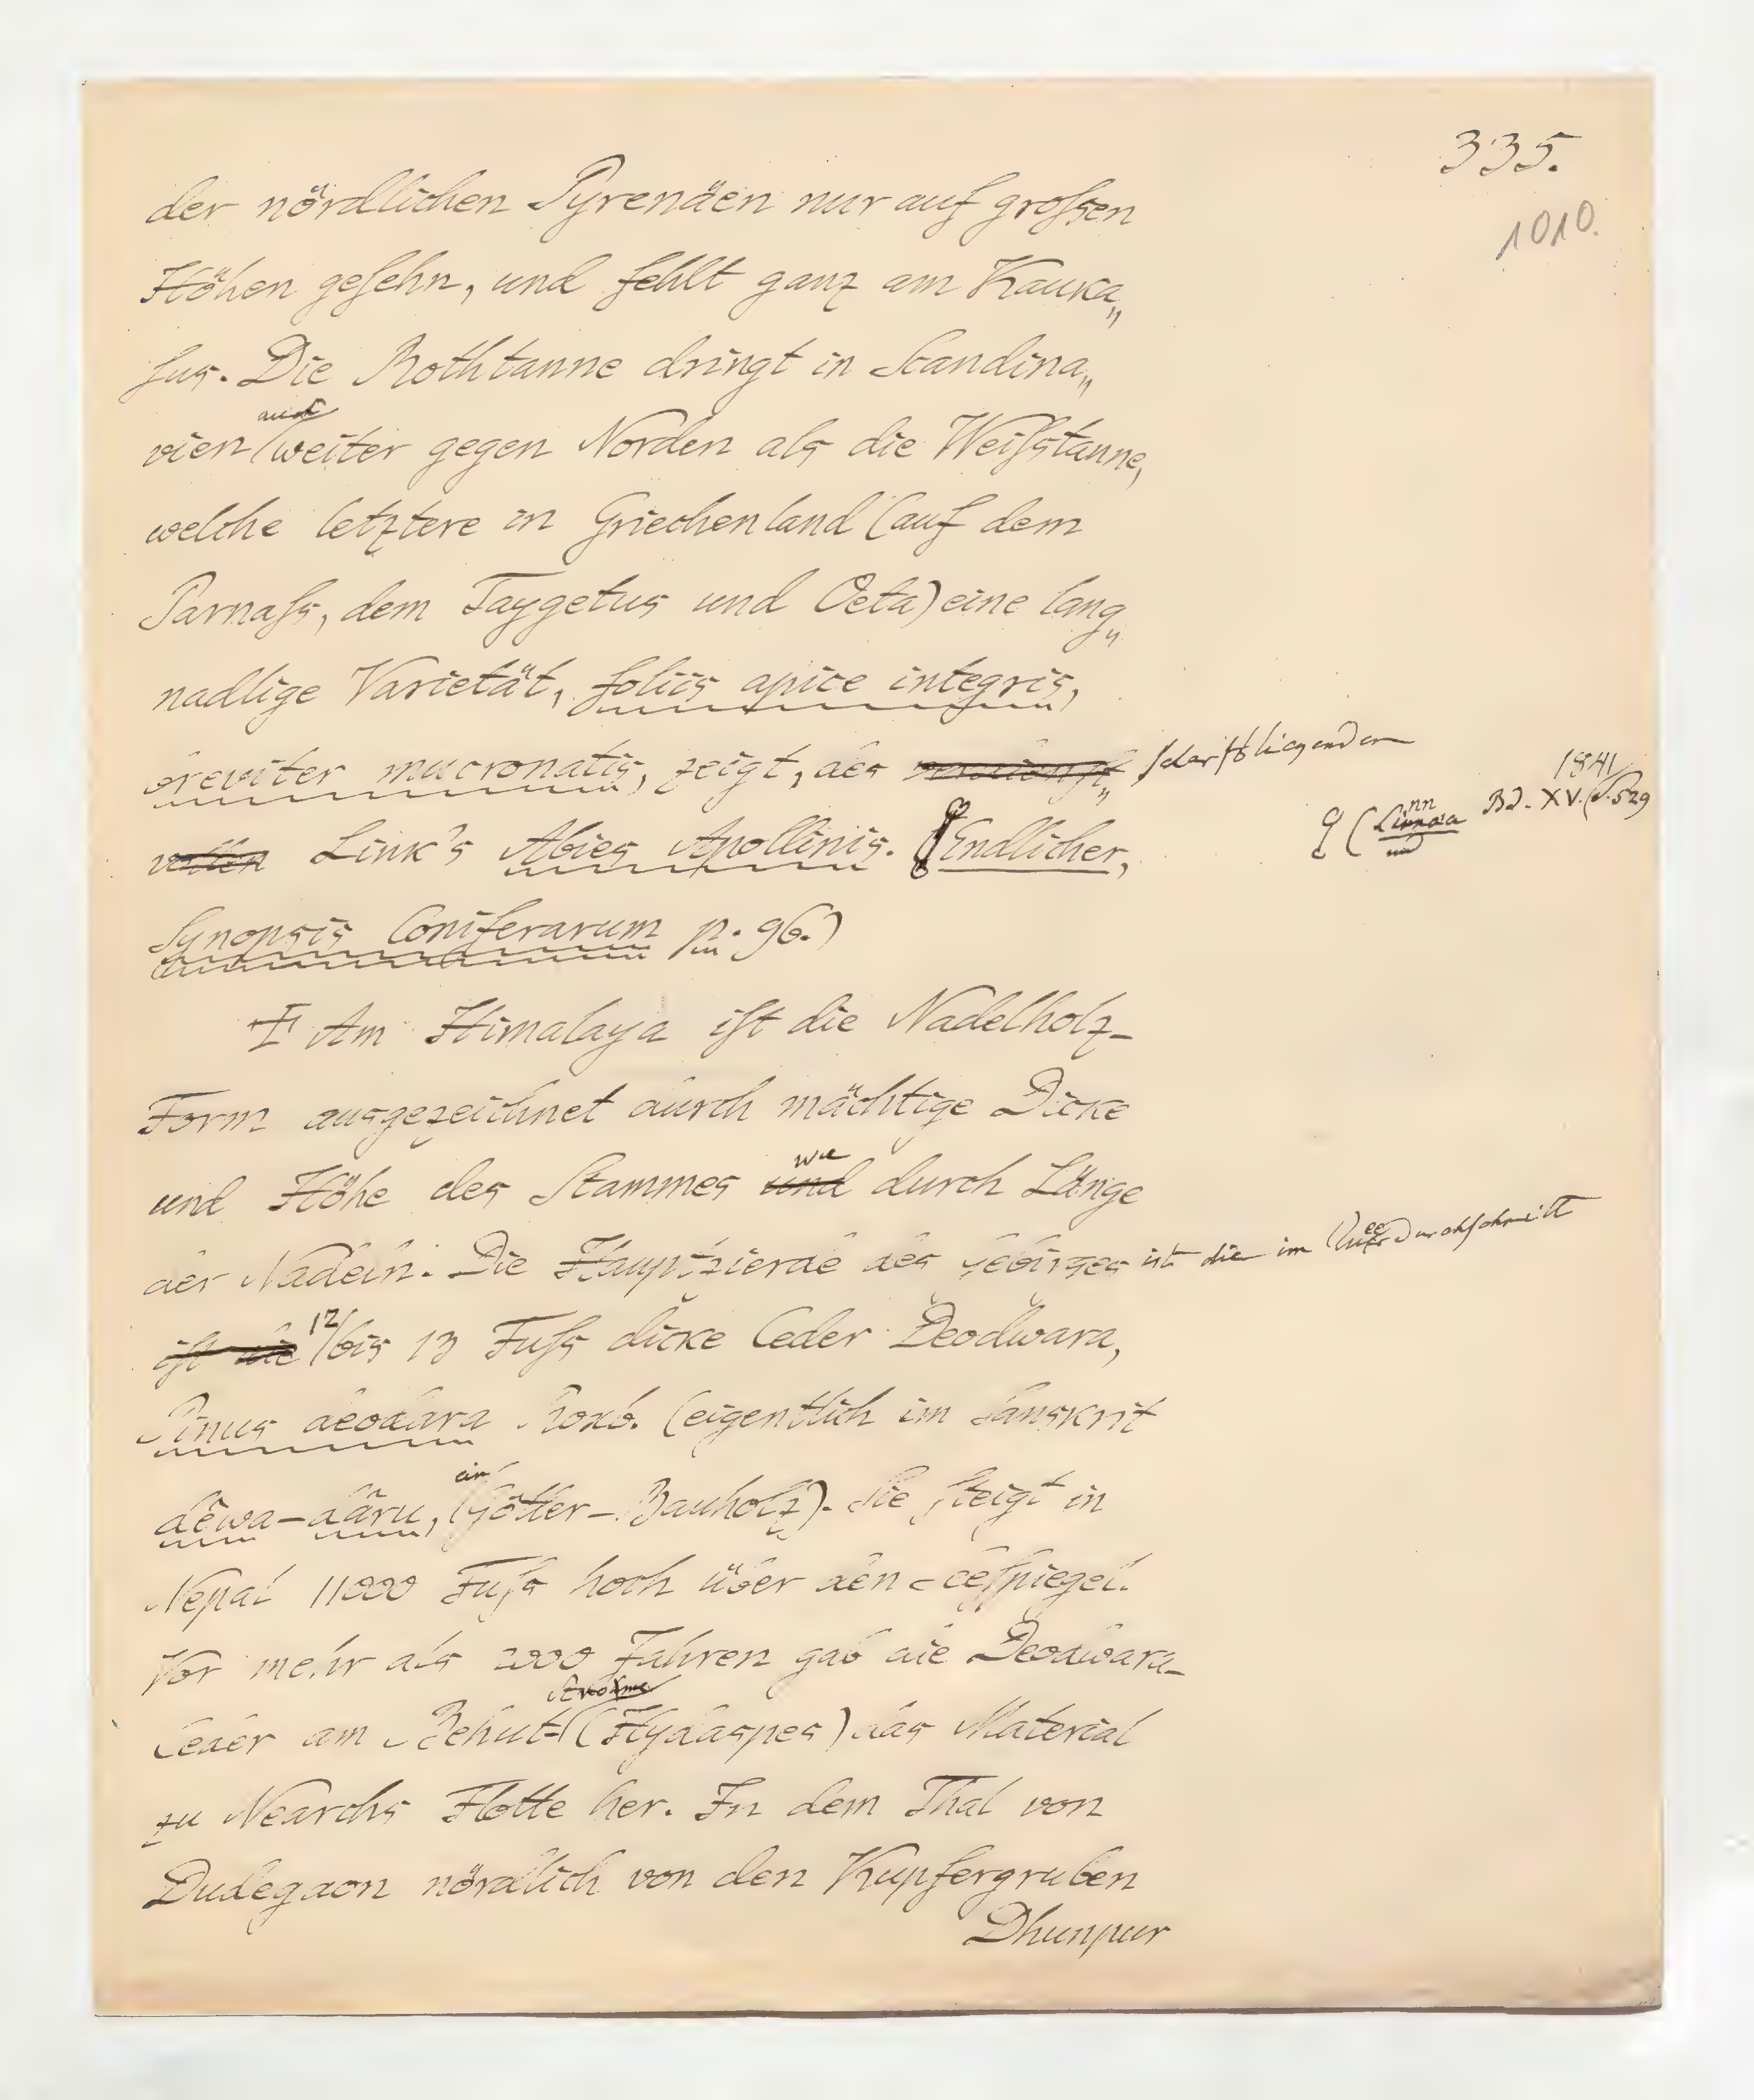 335.
1010.
der nördlichen Pyrenäen nur auf groſsen
Höhen geſehn, und fehlt ganz am Kauka„
ſus. Die Rothtanne dringt in Scandina„
auch
vien weiter gegen Norden als die Weiſstanne,
welche letztere in Griechenland (auf dem
Parnaſs, dem Taygetus und Oeta) eine lang„
nadlige Varietät, foliis apice integris,
breviter mucronatis, zeigt, des scharfsblickenden
Link's Abies Apollinis. (Linnaea Bd. XV. 1841 S. 529
Endlicher,
Synopsis Coniferarum p. 96.)
Am Himalaya iſt die Nadelholz-
Form ausgezeichnet durch mächtige Dicke
wie
und Höhe des Stammes und durch Länge
der Nadeln. Die Hauptzierde des Gebirges ist die im Queerdurchschnitt
iſt die 12 bis 13 Fuſs dicke Ceder Deodwara,
Pinus deodara Roxb. (eigentlich im Sanskrit
ein
dêwa-dâru, Götter-Bauholz). Sie ſteigt in
Nepal 11000 Fuſs hoch über den Seeſpiegel.
Vor mehr als 2000 Jahren gab die Deodwara-
Strome
Ceder am Behut-(Hydaspes) das Material
zu Nearchs Flotte her. In dem Thal von
Dudegaon nördlich von den Kupfergruben
Dhunpur